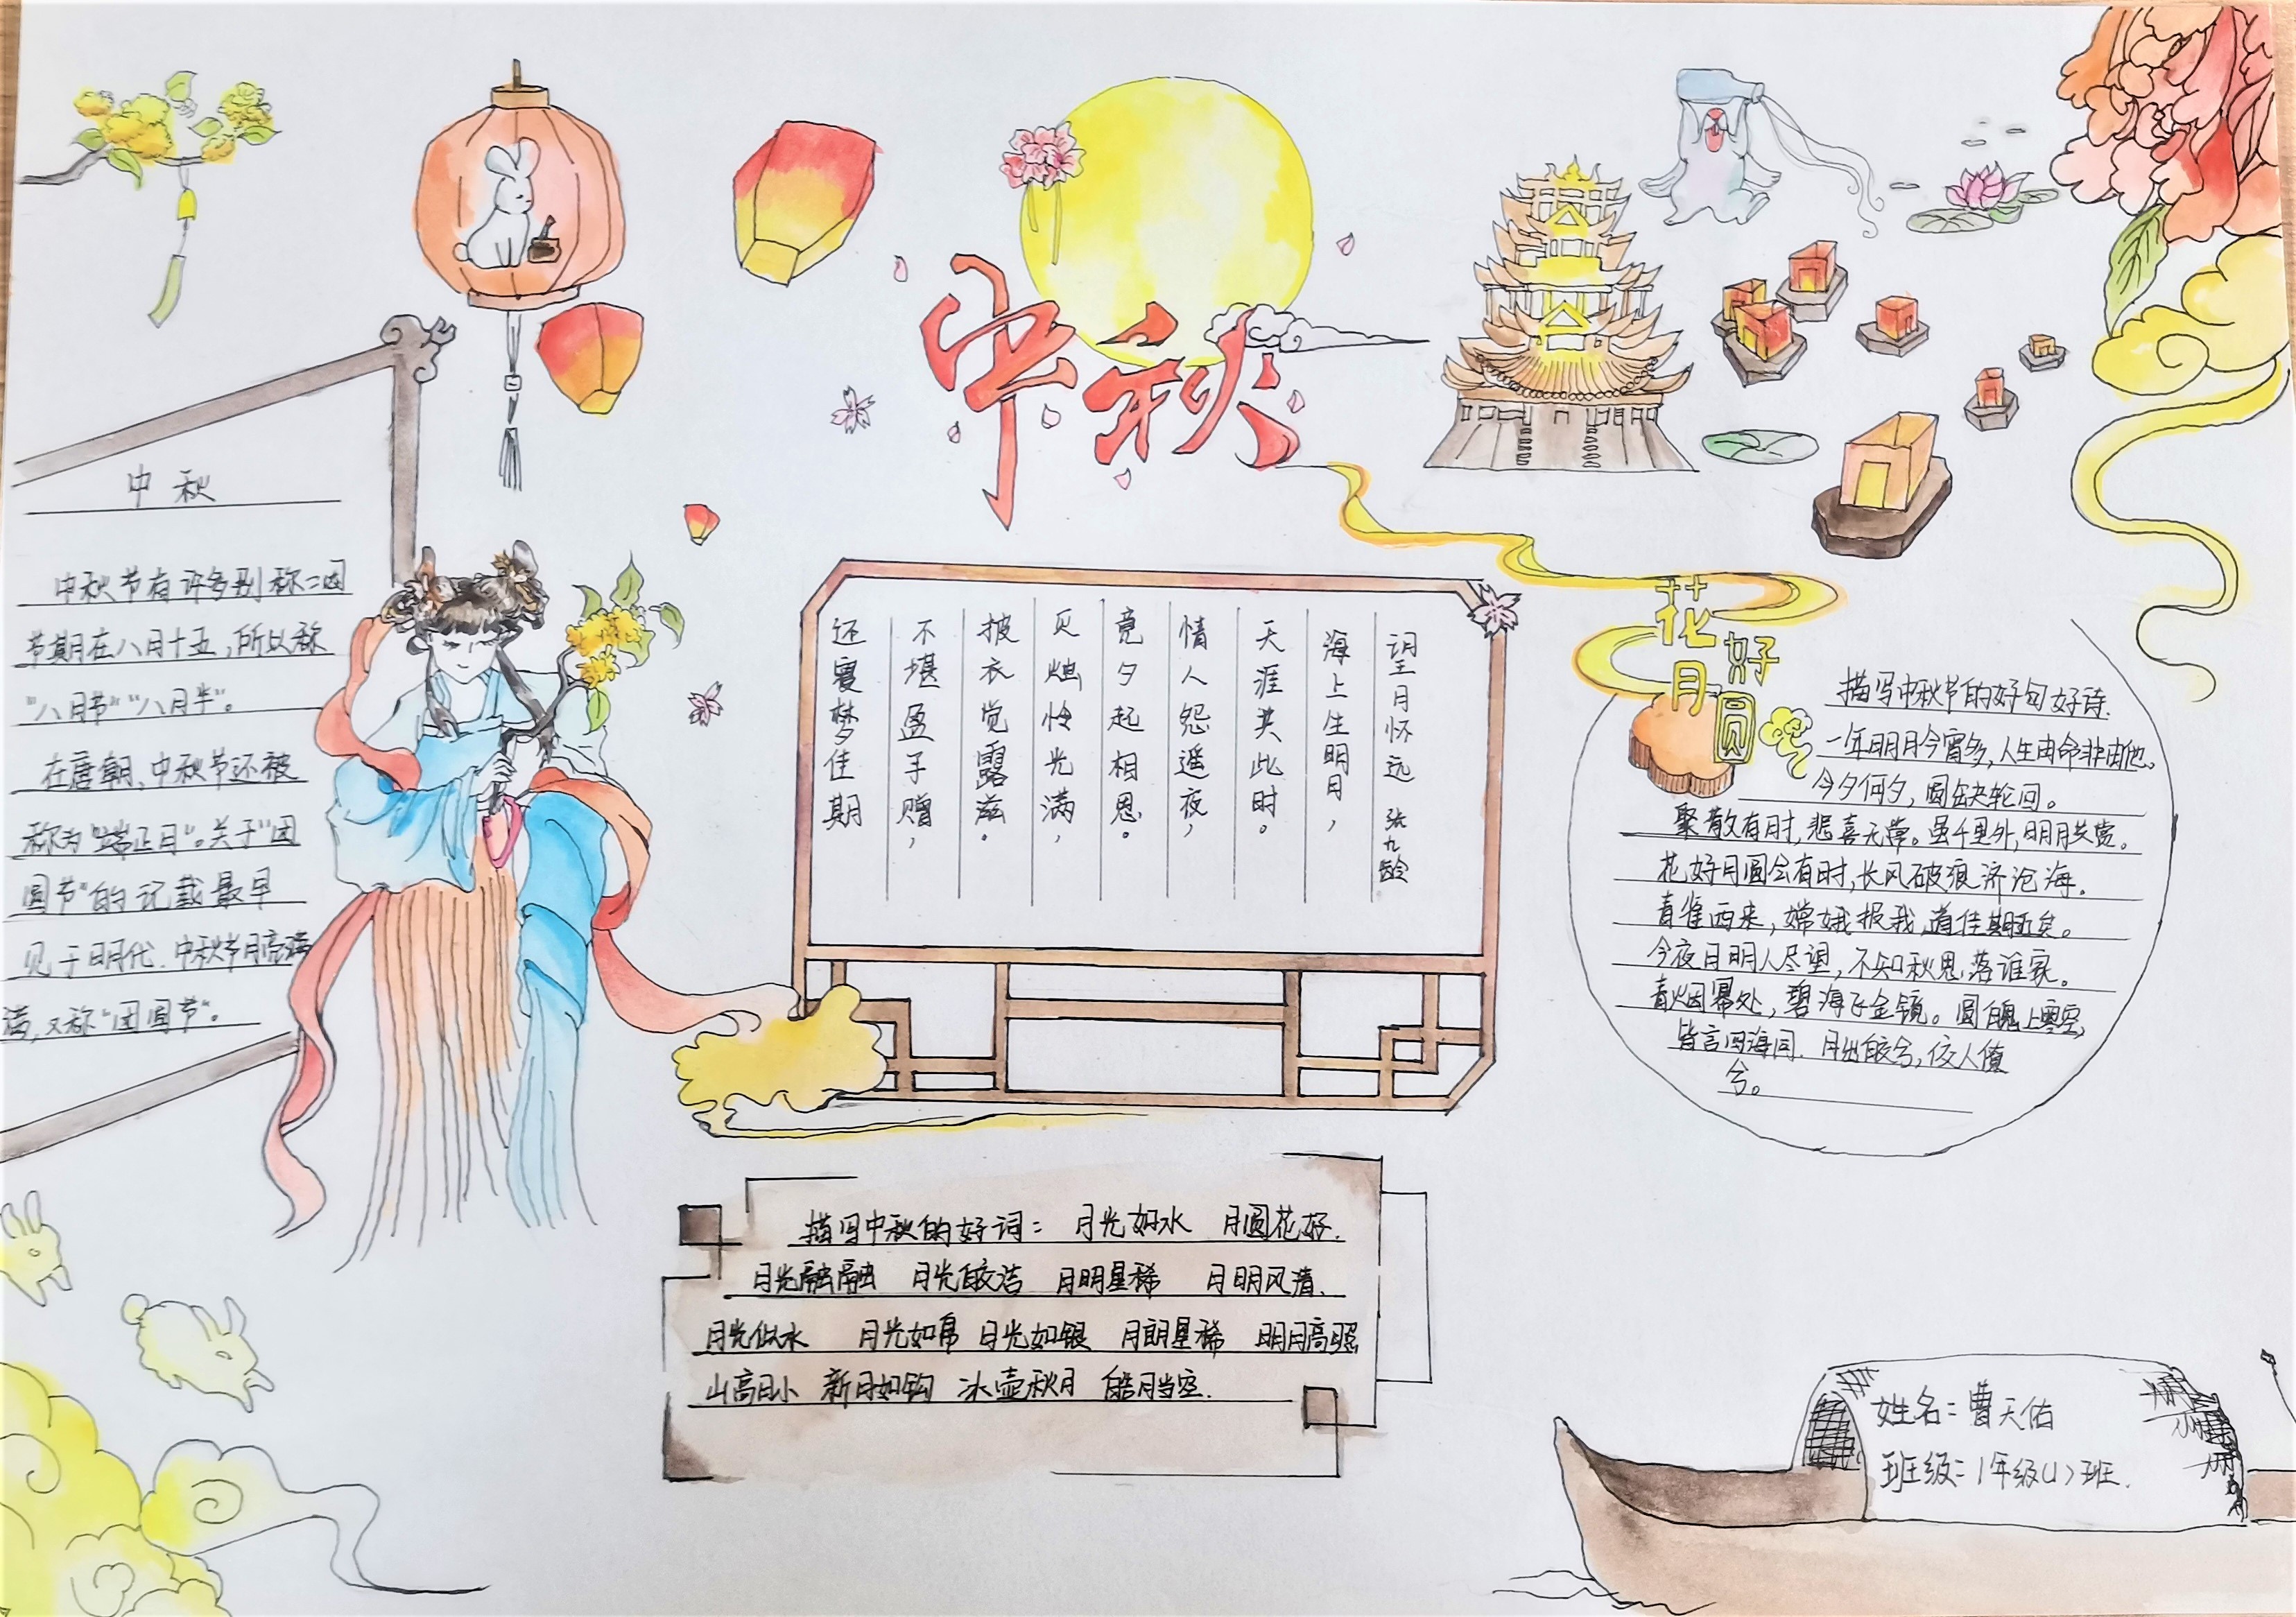 中秋
中秋
中秋节有许多别称：因
节期在八月十五，所以称
“八月节”“八月半”。
在唐朝、中秋节还被
称为“端正月”。关于“团
圆节”的记载最早
见于明代.中秋节月亮满
满，又称“团圆节”。
望月怀远 张九龄
海上生明月，
天涯共此时。
情人怨遥夜，
竟夕起相思。
灭烛怜光满，
披衣觉露滋。
不堪盈手赠，
还寝梦佳期
花好
月圆
描写中秋节的好句好诗.
一年明月今宵多，人生由命非由他。
今夕何夕，圆缺轮回。
聚散有时，悲喜无常。虽千里外，明月共赏。
花好月圆会有时，长风破浪济沧海.
青雀西来，嫦娥报我，道佳期近矣。
今夜月明人尽望，不知秋思落谁家。
青烟幂处，碧海飞金镜。圆魄上寒空，
皆言四海同.月出皎兮，佼人僚
兮。
描写中秋的好词：月光如水 月圆花好.
月光融融 月光皎洁 月明星稀 月明风清.
月光似水 月光如帛 月光如银 月朗星稀 明月高照
山高月小 新月如钩 冰壶秋月 皓月当空.
姓名：曹天佑
班级：1年级(1)班.